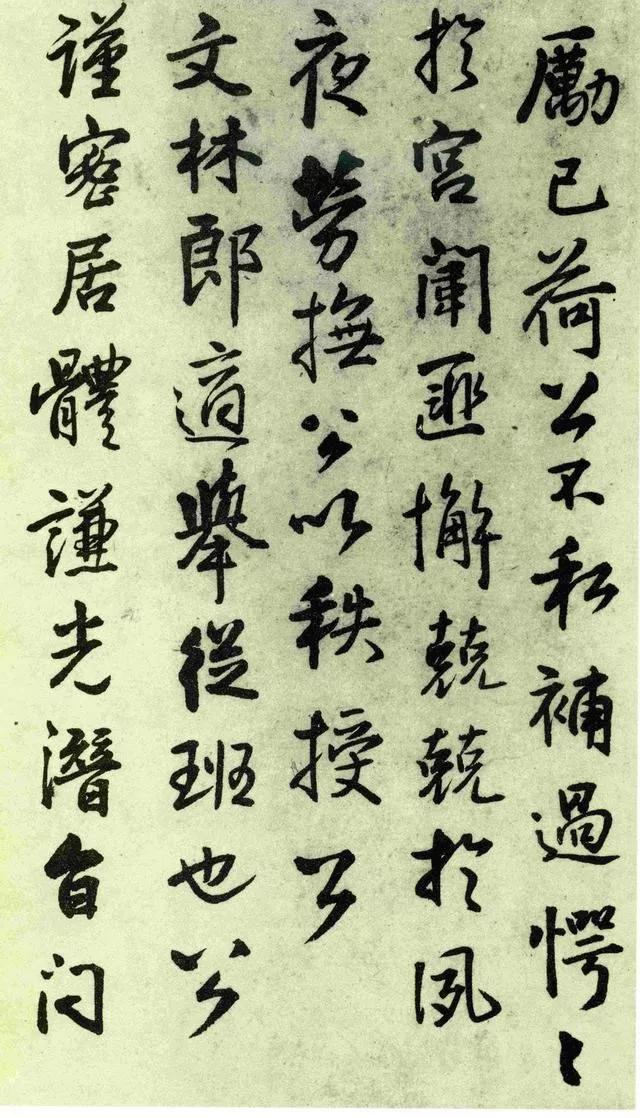 勵己荷公不私補過愕〻
於宮闈匪懈兢兢於夙
夜勞撫公以秩授公
文林郎適舉從班也公
謹密居體謙光潛自闩